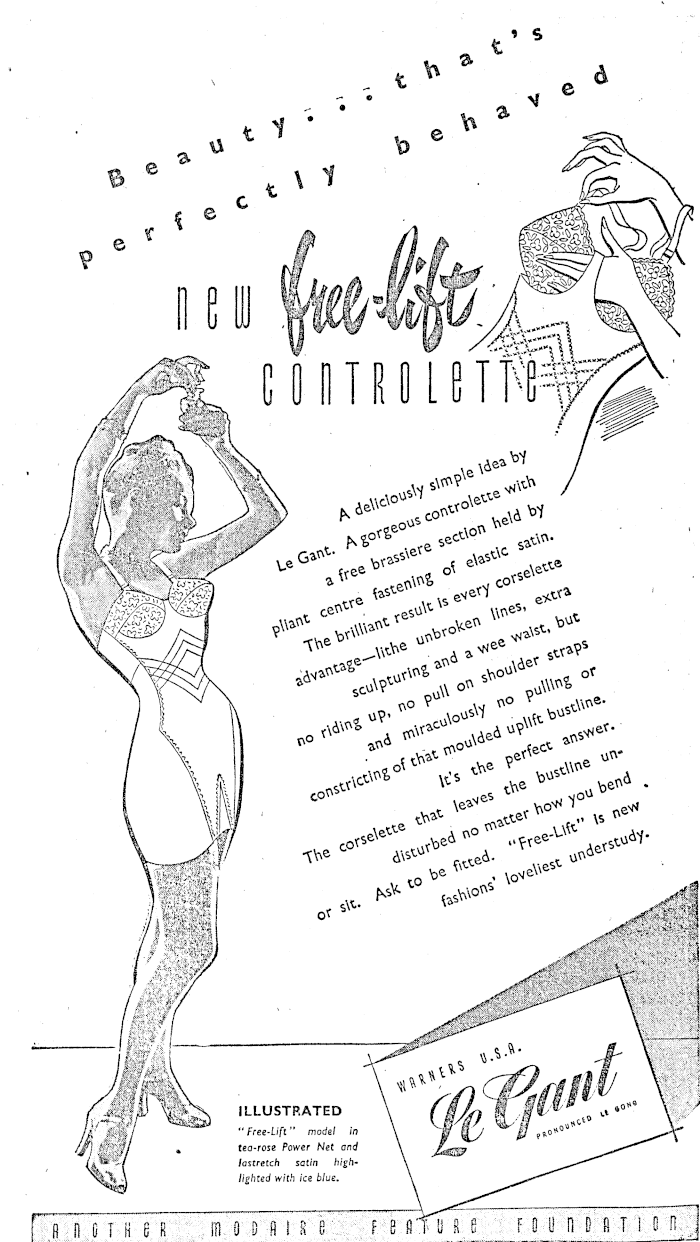 Beauty...that's
perfectly behaved
new free-lift
CONTROLETTE
A deliciously simple idea by
Le Gant. A gorgeous controlette with
a free brassiere section held by
pliant centre fastening of elastic satin.
The brilliant result is every corselette
advantage—lithe unbroken lines, extra
sculpturing and a wee waist, but
no riding up, no pull on shoulder straps
and miraculously no pulling or
constricting of that moulded uplift bustline.
It's the perfect answer.
The corselette that leaves the bustline un-
disturbed no matter how you bend
or sit. Ask to be fitted. "Free-Lift" is new
fashions' loveliest understudy.
WARNERS U.S.A.
Le Gant
PRONOUNCED LE GONG
ILLUSTRATED
"Free-Lift" model in
tea-rose Power Net and
lastretch satin high-
lighted with ice blue.
ANOTHER MODAIRE FEATURE FOUNDATION